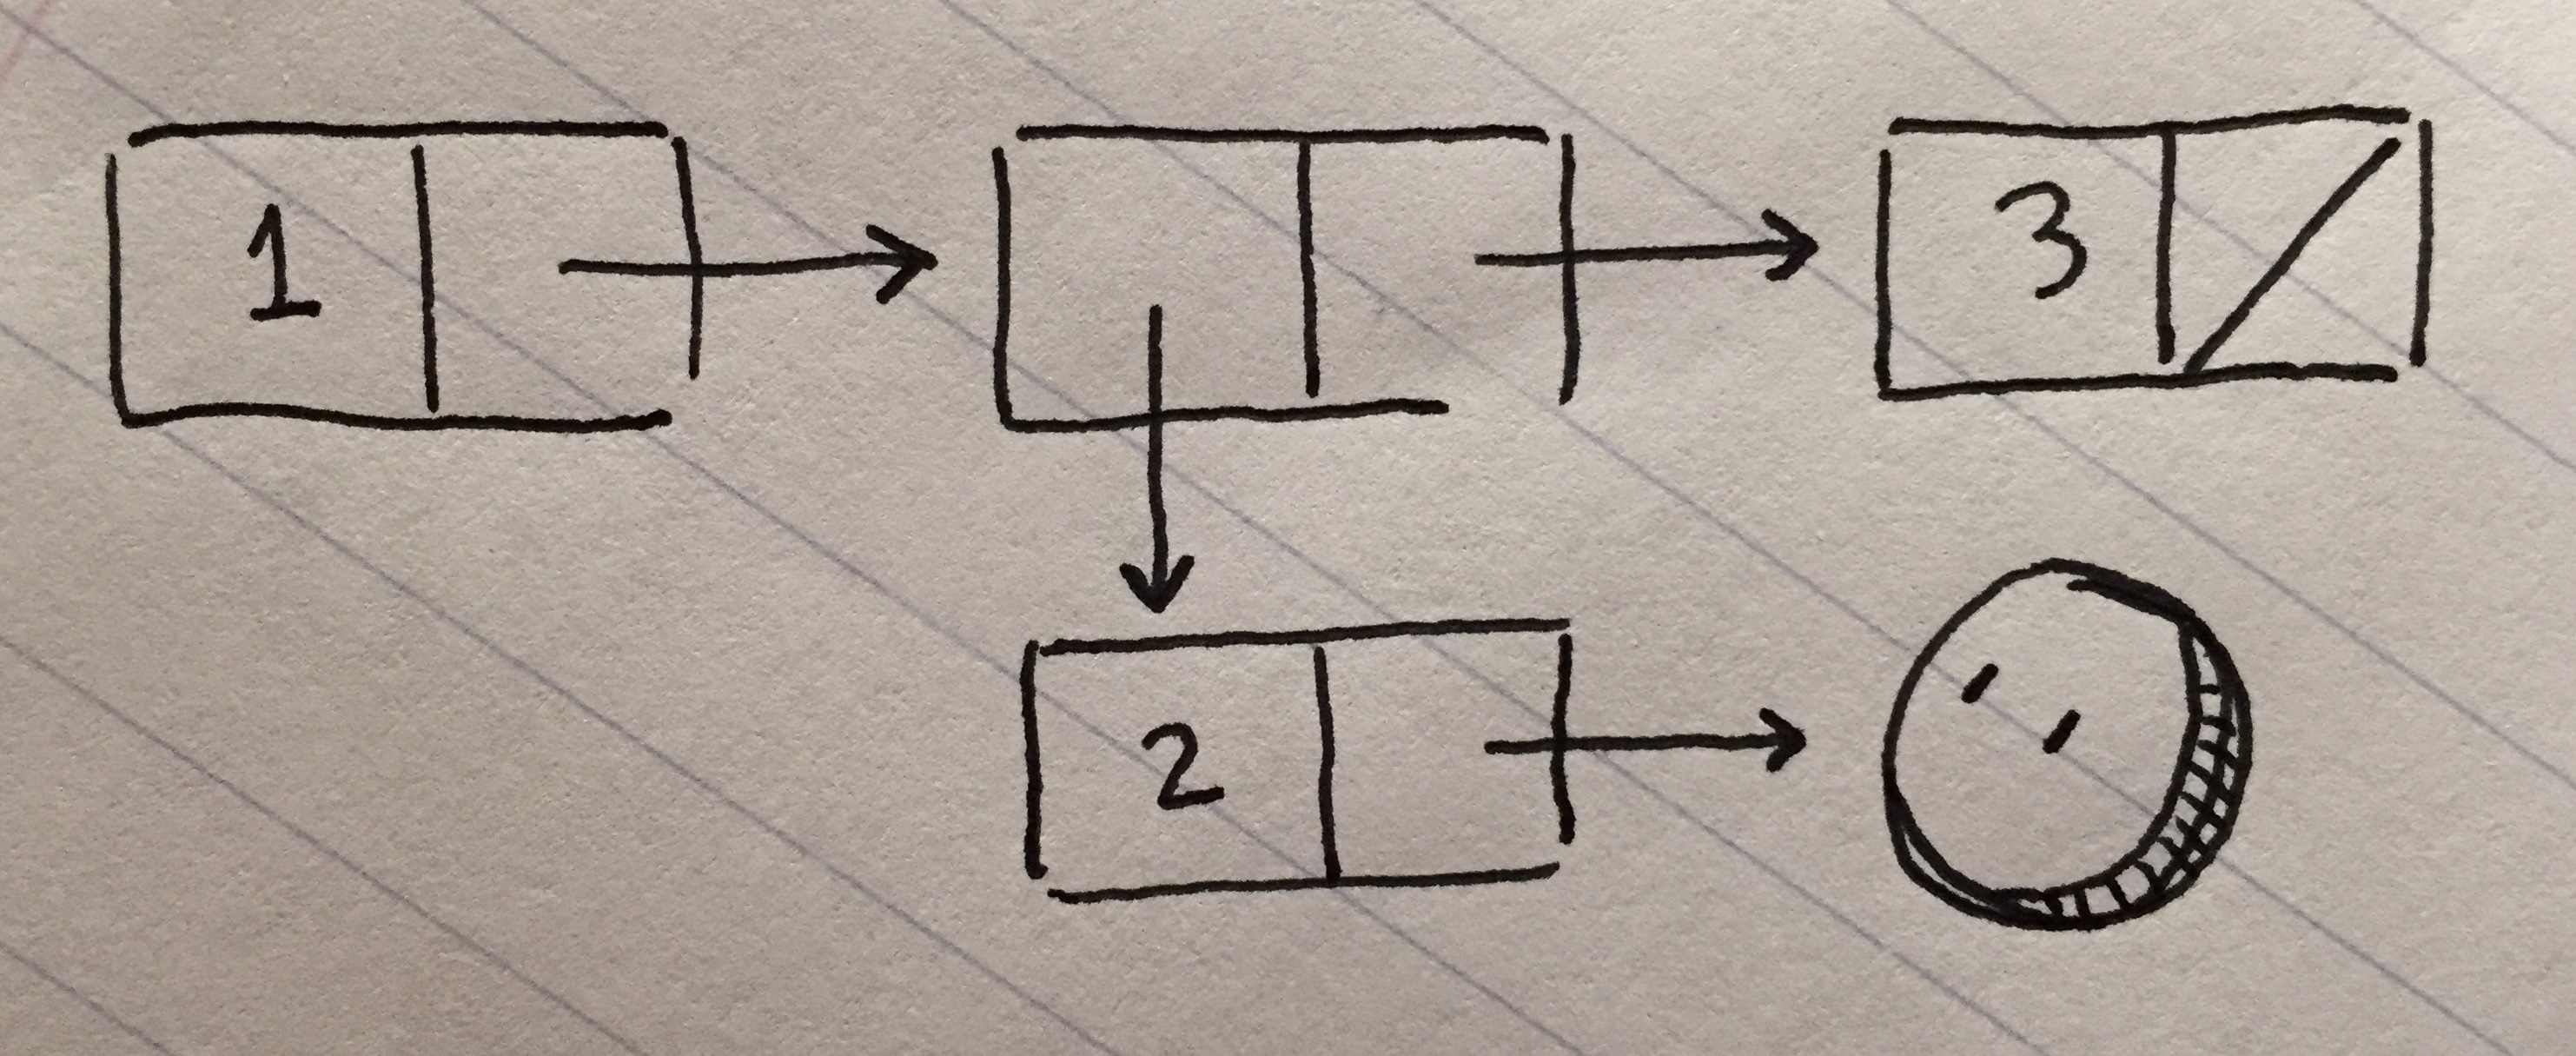 1 3
2